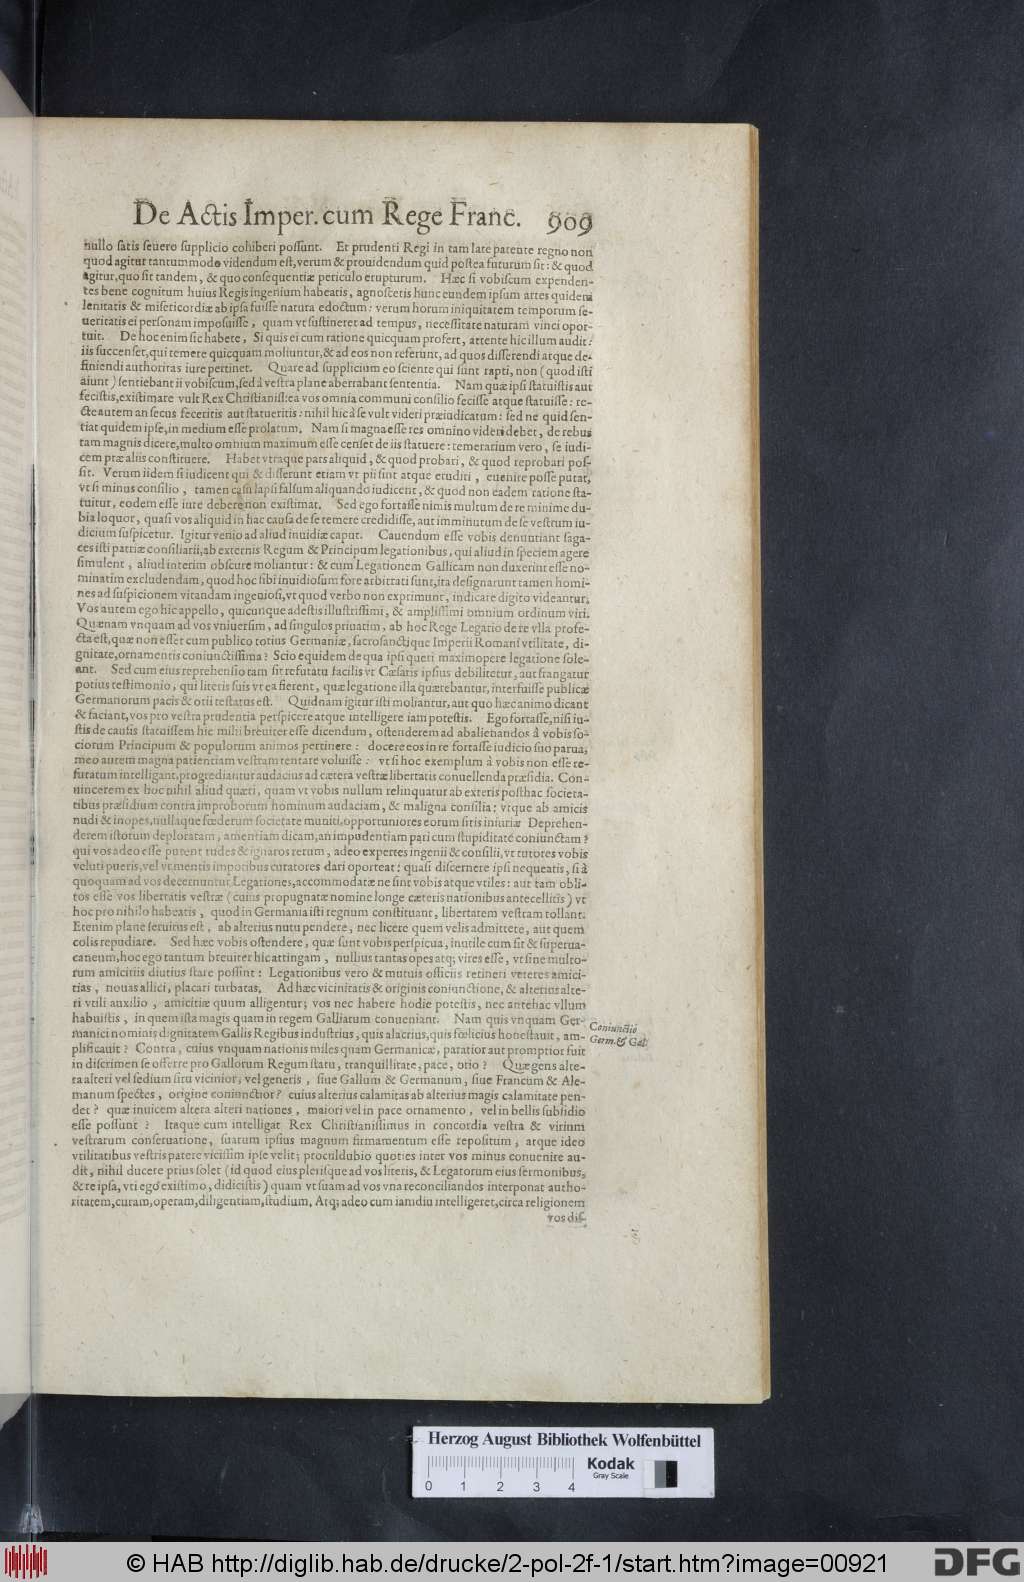 De Actis Imper. cum Rege Franc. 909
nullo satis seuero supplicio cohiberi possunt. Et prudenti Regi in tam late patente regno non
quod agitur tantummodo videndum est, verum & prouidendum quid postea futurum sit: & quod
agitur, quo sit tandem, & quo consequentiæ periculo erupturum. Hæc si vobiscum expenden-
tes bene cognitum huius Regis ingenium habeatis, agnoscetis hunc eundem ipsum artes quidem
lenitatis & misericordiæ ab ipsa fuisse natura edoctum: verum horum iniquitatem temporum se-
ueritatis ei personam imposuisse, quam vt sustineret ad tempus, necessitate naturam vinci opor-
tuit. De hoc enim sic habete, Si quis ei cum ratione quicquam profert, attente hic illum audit:
iis succenset, qui temere quicquam moliuntur, & ad eos non referunt, ad quos disserendi atque de-
finiendi authoritas iure pertinet. Quare ad supplicium eo sciente qui sunt rapti, non (quod isti
aiunt) sentiebant ii vobiscum, sed à vestra plane aberrabant sententia. Nam quæ ipsi statuistis aut
fecistis, existimare vult Rex Christianiss: ea vos omnia communi consilio fecisse atque statuisse: re-
cte autem an secus feceritis aut statueritis: nihil hic à se vult videri præiudicatum: sed ne quid sen-
tiat quidem ipse, in medium esse prolatum. Nam si magna esse res omnino videri debet, de rebus
tam magnis dicere, multo omnium maximum esse censet de iis statuere: temerarium vero, se iudi-
cem præ aliis constituere. Habet vtraque pars aliquid, & quod probari, & quod reprobari pos-
sit. Verum iidem si iudicent qui & disserunt etiam vt pii sint atque eruditi, euenire posse putat,
vt si minus consilio, tamen casu lapsi falsum aliquando iudicent, & quod non eadem ratione sta-
tuitur, eodem esse iure debere non existimat. Sed ego fortasse nimis multum de re minime du-
bia loquor, quasi vos aliquid in hac causa de se temere credidisse, aut imminutum de se vestrum iu-
dicium suspicetur. Igitur venio ad aliud inuidiæ caput. Cauendum esse vobis denuntiant saga-
ces isti patriæ consiliarii, ab externis Regum & Principum legationibus, qui aliud in speciem agere
simulent, aliud interim obscure moliantur: & cum Legationem Gallicam non duxerint esse no-
minatim excludendam, quod hoc sibi inuidiosum fore arbitrati sunt, ita designarunt tamen homi-
nes ad suspicionem vitandam ingeniosi, vt quod verbo non exprimunt, indicare digito videantur.
Vos autem ego hic appello, quicunque adestis illustrissimi, & amplissimi omnium ordinum viri.
Quænam vnquam ad vos vniuersim, ad singulos priuatim, ab hoc Rege Legatio de re vlla profe-
cta est, quæ non esset cum publico totius Germaniæ, sacrosanctique Imperii Romani vtilitate, di-
gnitate, ornamentis coniunctissima? Scio equidem de qua ipsi queri maximopere legatione sole-
ant. Sed cum eius reprehensio tam sit refutatu facilis vt Cæsaris ipsius debilitetur, aut frangatur
potius testimonio, qui literis suis vt ea fierent, quæ legatione illa quærebantur, interfuisse publicæ
Germanorum pacis & otii testatus est. Quidnam igitur isti moliantur, aut quo hæc animo dicant
& faciant, vos pro vestra prudentia perspicere atque intelligere iam potestis. Ego fortasse, nisi iu-
stis de causis statuissem hic mihi breuiter esse dicendum, ostenderem ad abalienandos à vobis so-
ciorum Principum & populorum animos pertinere: docere eos in re fortasse iudicio suo parua,
meo autem magna patientiam vestram tentare voluisse: vt si hoc exemplum à vobis non esse re-
futatum intelligant, progrediantur audacius ad cætera vestræ libertatis conuellenda præsidia. Con-
uincerem ex hoc nihil aliud quæri, quam vt vobis nullum relinquatur ab exteris posthac societa-
tibus præsidium contra improborum hominum audaciam, & maligna consilia: vtque ab amicis
nudi & inopes, nullaque fœderum societate muniti, opportuniores eorum sitis iniuriæ Deprehen-
derem istorum deploratam, amentiam dicam, an impudentiam pari cum stupiditate coniunctam?
qui vos adeo esse putent rudes & ignaros rerum, adeo expertes ingenii & consilii, vt tutores vobis
veluti pueris, vel vt mentis impotibus curatores dari oporteat: quasi discernere ipsi nequeatis, si à
quoquam ad vos decernuntur Legationes, accommodatæ ne sint vobis atque vtiles: aut tam obli-
tos esse vos libertatis vestræ (cuius propugnatæ nomine longe cæteris nationibus antecellitis) vt
hoc pro nihilo habeatis, quod in Germania isti regnum constituant, libertatem vestram tollant.
Etenim plane seruitus est, ab alterius nutu pendere, nec licere quem velis admittere, aut quem
colis repudiare. Sed hæc vobis ostendere, quæ sunt vobis perspicua, inutile cum sit & superua-
caneum, hoc ego tantum breuiter hic attingam, nullius tantas opes atq; vires esse, vt sine multo-
rum amicitiis diutius stare possint: Legationibus vero & mutuis officiis retineri veteres amici-
tias, nouas allici, placari turbatas. Ad hæc vicinitatis & originis coniunctione, & alterius alte-
ri vtili auxilio, amicitiæ quum alligentur; vos nec habere hodie potestis, nec antehac vllum
habuistis, in quem ista magis quam in regem Galliatum conueniant. Nam quis vnquam Ger-
manici nominis dignitatem Gallis Regibus industrius, quis alacrius, quis fœlicius honestauit, am-
plificauit? Contra, cuius vnquam nationis miles quam Germanicæ, paratior aut promptior fuit
in discrimen se offerre pro Gallorum Regum statu, tranquillitate, pace, otio? Quæ gens alte-
ra alteri vel sedium situ vicinior, vel generis, siue Gallum & Germanum, siue Francum & Ale-
manum spectes, origine coniunctior? cuius alterius calamitas ab alterius magis calamitate pen-
det? quæ inuicem altera alteri nationes, maiori vel in pace ornamento, vel in bellis subsidio
esse possunt? Itaque cum intelligat Rex Christianissimus in concordia vestra & virium
vestrarum conseruatione, suarum ipsius magnum firmamentum esse repositum, atque ideo
vtilitatibus vestris patere vicissim ipse velit; proculdubio quoties inter vos minus conuenire au-
dit, nihil ducere prius solet (id quod eius plerisque ad vos literis, & Legatorum eius sermonibus,
& re ipsa, vti ego existimo, didicistis) quam vt suam ad vos vna reconciliandos interponat autho-
ritatem, curam, operam, diligentiam, studium. Atq; adeo cum iamdiu intelligeret, circa religionem
vos dis-
Coniunctio
Germ. & Gal.
Herzog August Bibliothek Wolfenbüttel
Kodak
Gray Scale
0 1 2 3 4
© HAB http://diglib.hab.de/drucke/2-pol-2f-1/start.htm?image=00921
DFG